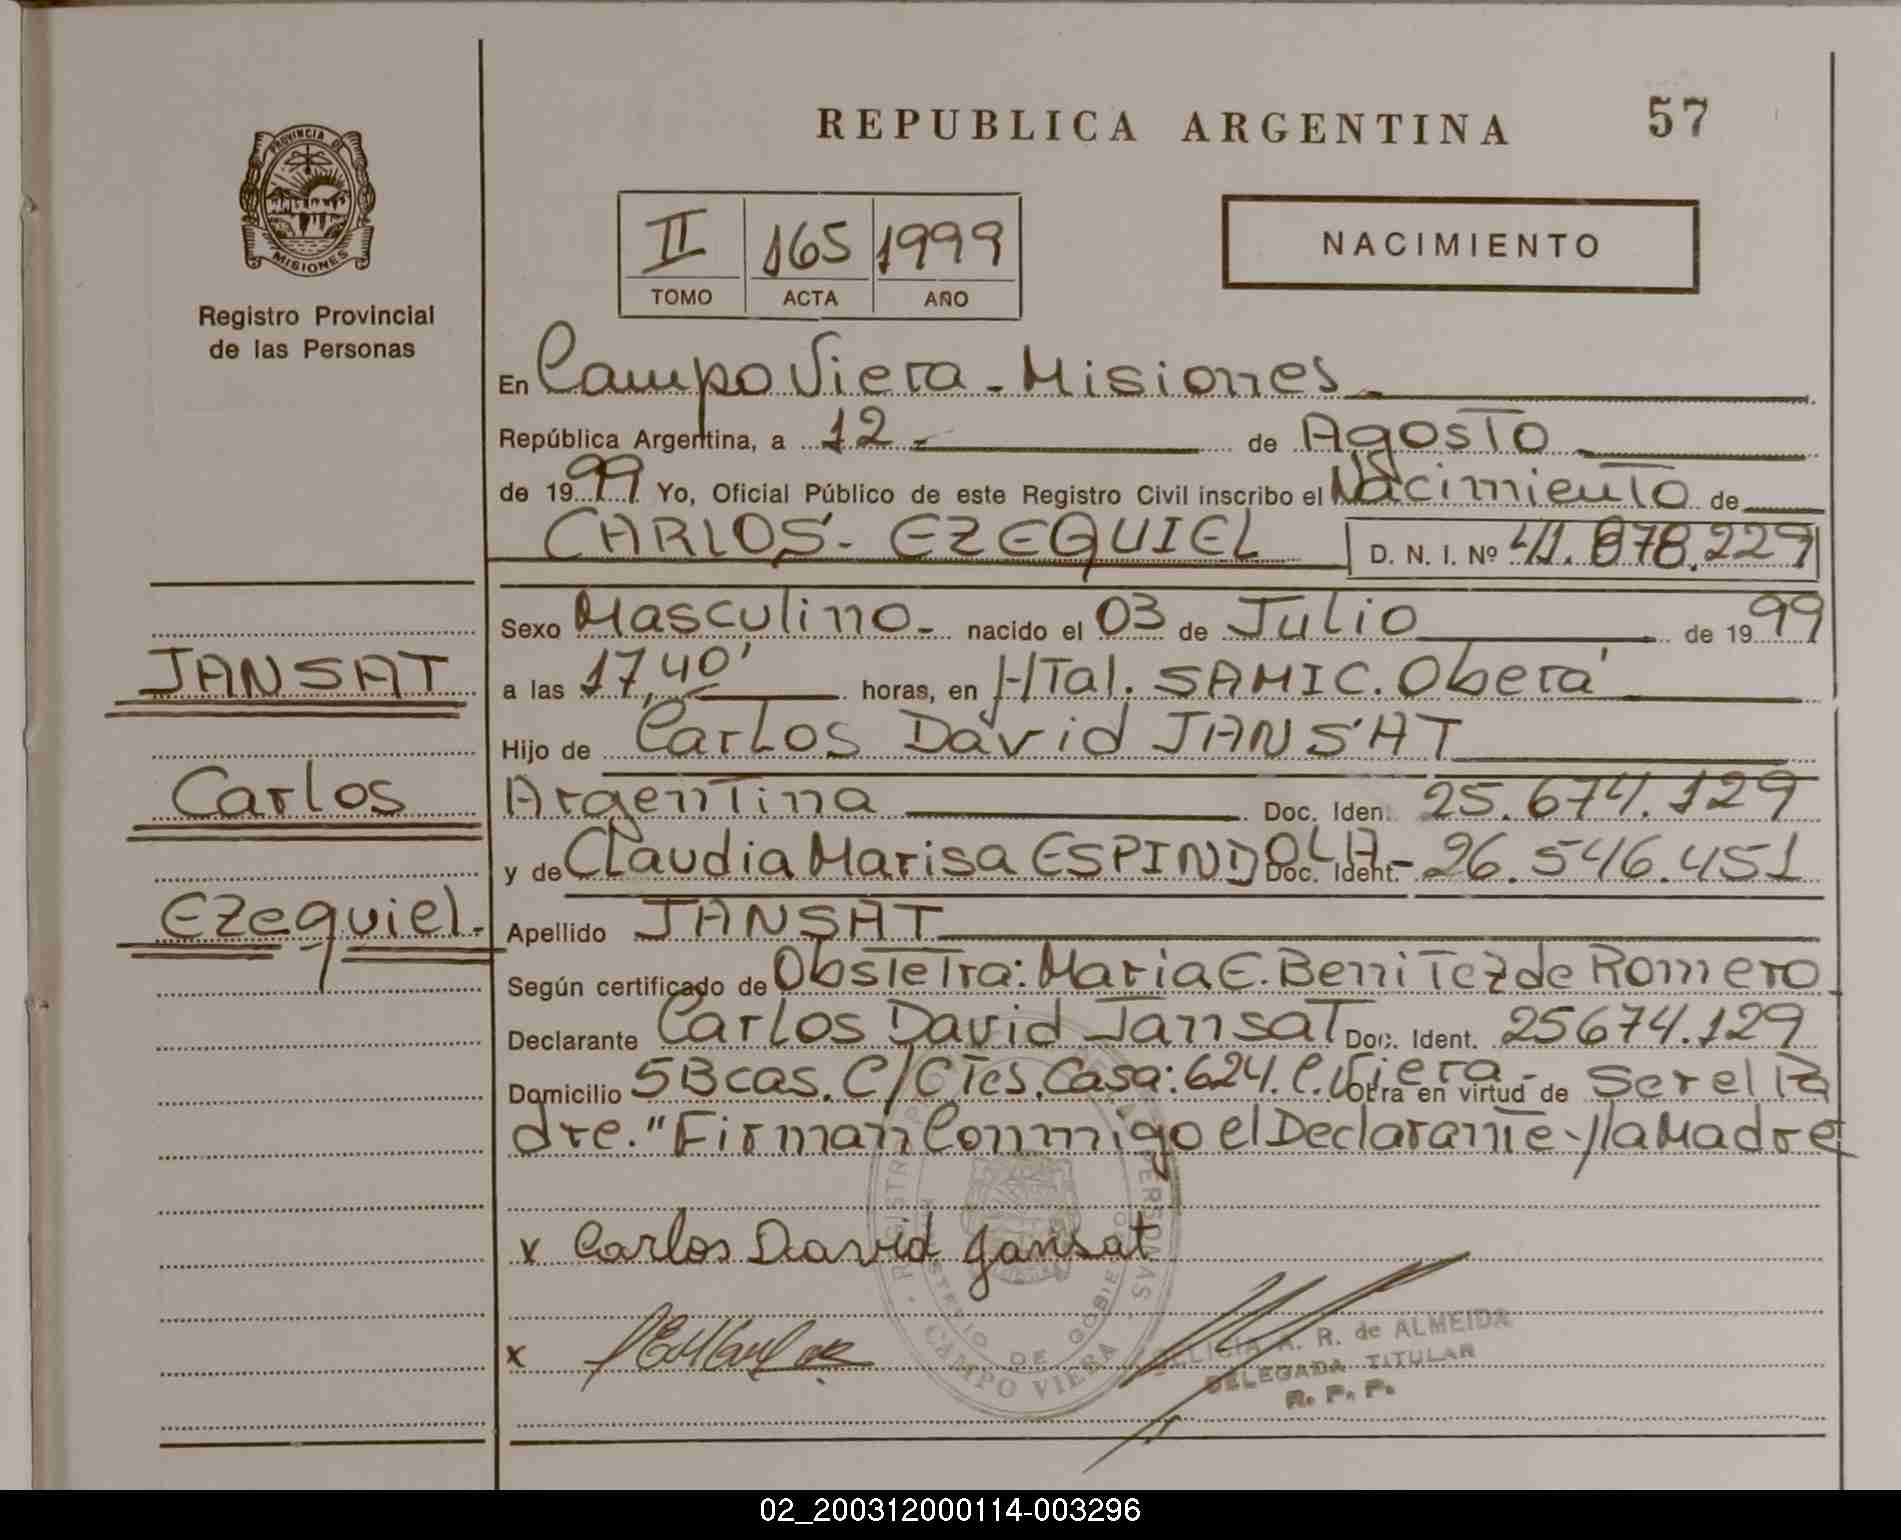 REPUBLICA ARGENTINA
57
PROVINCIA DE
MISIONES
Registro Provincial
de las Personas
II 165 1999
TOMO ACTA AÑO
NACIMIENTO
En Campo Viera - Misiones
República Argentina, a 12 - de Agosto
de 1999 Yo, Oficial Público de este Registro Civil inscribo el Nacimiento de
CARLOS - EZEQUIEL D. N. I. Nº 41.878.229
Sexo Masculino - nacido el 03 de Julio de 1999
a las 17,40' horas, en HTal. SAMIC. Oberá
Hijo de Carlos David JANSAT
Argentina Doc. Iden. 25.674.129
y de Claudia Marisa ESPINDOLA - Doc. Ident. 26.546.451
Apellido JANSAT
Según certificado de Obstetra: Maria E. Benitez de Romero
Declarante Carlos David Jansat Doc. Ident. 25674.129
Domicilio 53 cas. C/Ctes. Casa: 624. C. Viera - Obra en virtud de Ser el Pa
dre. "Firman Conmigo el Declarante y la Madre
JANSAT
Carlos
Ezequiel -
x Carlos David Jansat
x
CAMPO VIERA
A. R. de ALMEIDA
DELEGADA TITULAR
R. P. P.
02_200312000114-003296